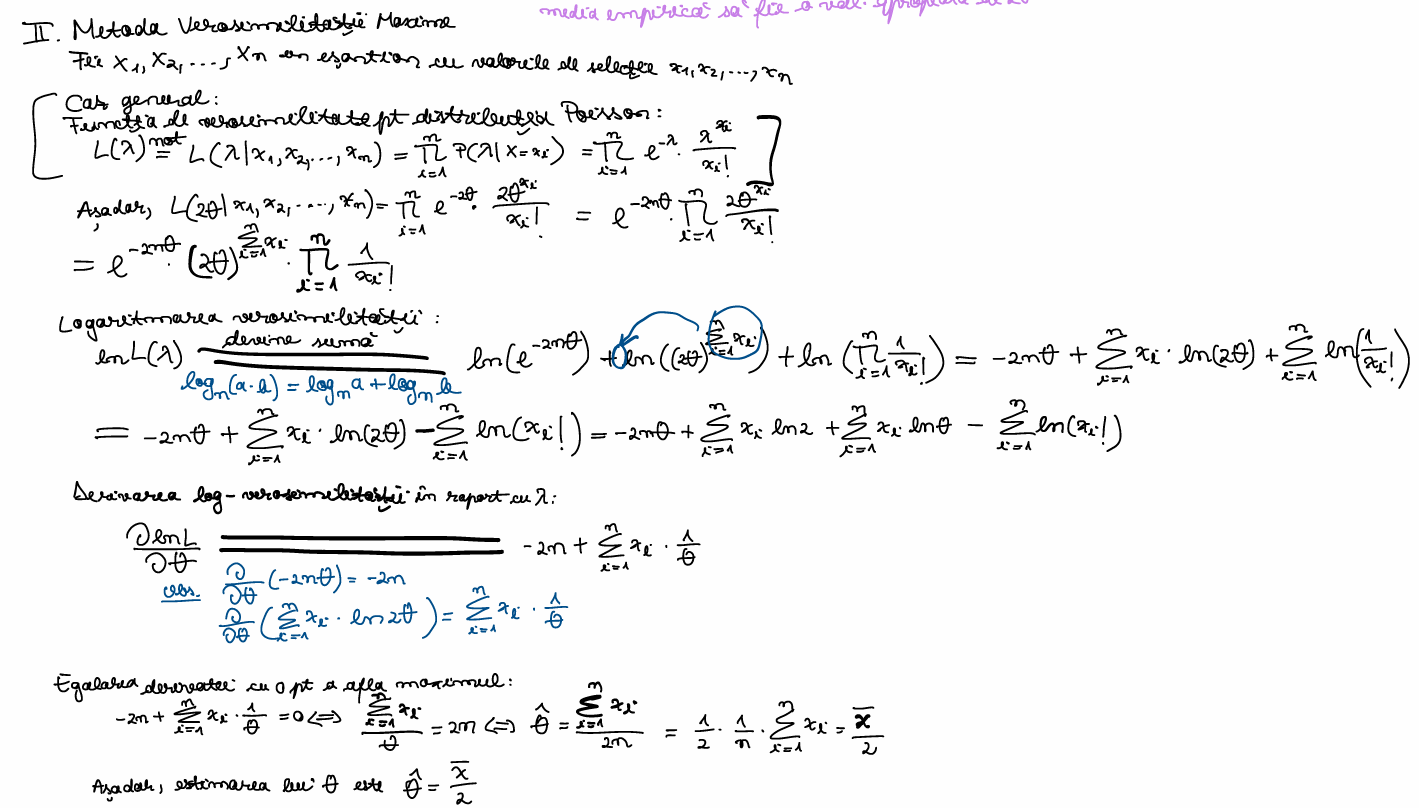 media empirică să fie o val. apropiată de 2θ
II. Metoda Verosimilității Maxime
Fie X₁, X₂, ..., Xₙ un eșantion cu valorile de selecție x₁, x₂, ..., xₙ
Caz general:
Funcția de verosimilitate pt distribuția Poisson:
L(λ) not= L(λ|x₁, x₂, ..., xₙ) = ∏_{i=1}^{n} P(λ|X=xᵢ) = ∏_{i=1}^{n} e^{-λ} · λ^{xᵢ}/xᵢ!
Așadar, L(2θ|x₁, x₂, ..., xₙ) = ∏_{i=1}^{n} e^{-2θ} · 2θ^{xᵢ}/xᵢ! = e^{-2nθ} · ∏_{i=1}^{n} 2θ^{xᵢ}/xᵢ!
= e^{-2nθ} · (2θ)^{∑_{i=1}^{n} xᵢ} · ∏_{i=1}^{n} 1/xᵢ!
Logaritmarea verosimilității:
ln L(λ) devine sumă ln(e^{-2nθ}) + ln((2θ)^{∑_{i=1}^{n} xᵢ}) + ln(∏_{i=1}^{n} 1/xᵢ!) = -2nθ + ∑_{i=1}^{n} xᵢ · ln(2θ) + ∑_{i=1}^{n} ln(1/xᵢ!)
logₙ(a·b) = logₙ a + logₙ b
= -2nθ + ∑_{i=1}^{n} xᵢ · ln(2θ) - ∑_{i=1}^{n} ln(xᵢ!) = -2nθ + ∑_{i=1}^{n} xᵢ ln2 + ∑_{i=1}^{n} xᵢ lnθ - ∑_{i=1}^{n} ln(xᵢ!)
Derivarea log-verosimilității în raport cu λ:
∂lnL/∂θ = -2n + ∑_{i=1}^{n} xᵢ · 1/θ
obs. ∂/∂θ (-2nθ) = -2n
∂/∂θ (∑_{i=1}^{n} xᵢ · ln2θ) = ∑_{i=1}^{n} xᵢ · 1/θ
Egalarea derivatei cu 0 pt a afla maximul:
-2n + ∑_{i=1}^{n} xᵢ · 1/θ = 0 ⇔ ∑_{i=1}^{n} xᵢ/θ = 2n ⇔ θ̂ = ∑_{i=1}^{n} xᵢ/2n = 1/2 · 1/n · ∑_{i=1}^{n} xᵢ = x̄/2
Așadar, estimarea lui θ este θ̂ = x̄/2